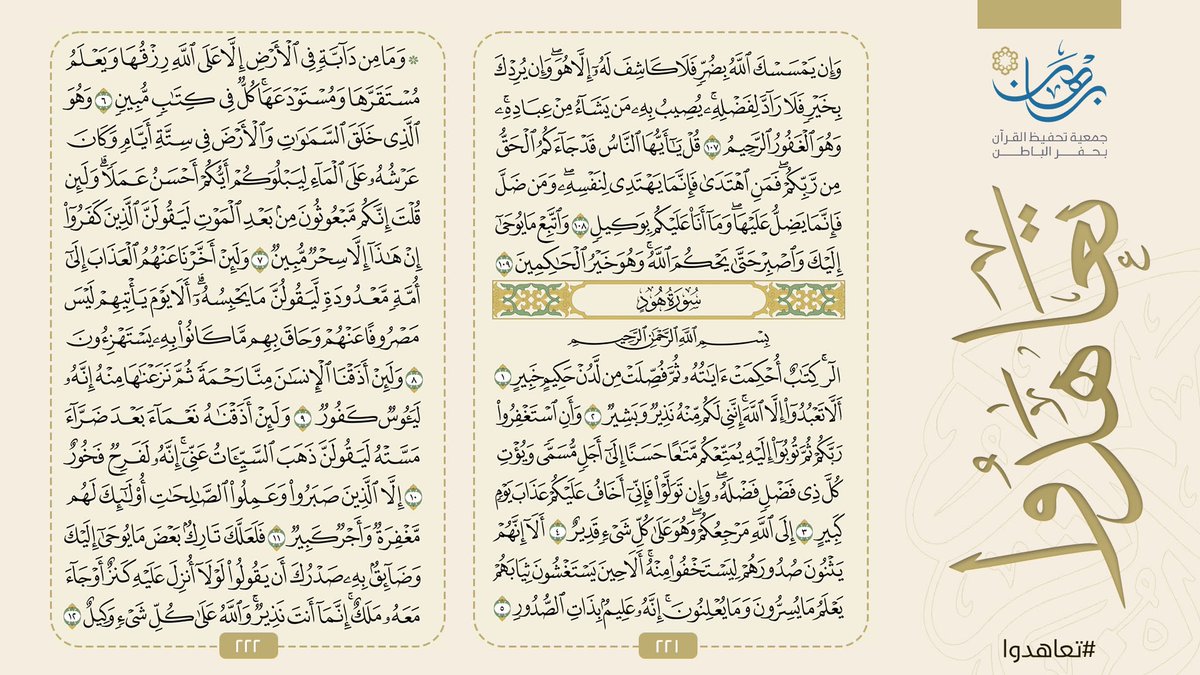 برهان
جمعية تحفيظ القرآن
بحفر الباطن
تعاهدوا
#تعاهدوا
وَإِن يَمْسَسْكَ ٱللَّهُ بِضُرٍّ فَلَا كَاشِفَ لَهُۥٓ إِلَّا هُوَۖ وَإِن يُرِدْكَ
بِخَيْرٍ فَلَا رَآدَّ لِفَضْلِهِۦۚ يُصِيبُ بِهِۦ مَن يَشَآءُ مِنْ عِبَادِهِۦۚ
وَهُوَ ٱلْغَفُورُ ٱلرَّحِيمُ ١٠٧ قُلْ يَٰٓأَيُّهَا ٱلنَّاسُ قَدْ جَآءَكُمُ ٱلْحَقُّ
مِن رَّبِّكُمْۖ فَمَنِ ٱهْتَدَىٰ فَإِنَّمَا يَهْتَدِى لِنَفْسِهِۦۖ وَمَن ضَلَّ
فَإِنَّمَا يَضِلُّ عَلَيْهَاۖ وَمَآ أَنَا۠ عَلَيْكُم بِوَكِيلٍ ١٠٨ وَٱتَّبِعْ مَا يُوحَىٰٓ
إِلَيْكَ وَٱصْبِرْ حَتَّىٰ يَحْكُمَ ٱللَّهُۚ وَهُوَ خَيْرُ ٱلْحَٰكِمِينَ ١٠٩
سُورَةُ هُودٍ
بِسْمِ ٱللَّهِ ٱلرَّحْمَٰنِ ٱلرَّحِيمِ
الٓرۚ كِتَٰبٌ أُحْكِمَتْ ءَايَٰتُهُۥ ثُمَّ فُصِّلَتْ مِن لَّدُنْ حَكِيمٍ خَبِيرٍ ١
أَلَّا تَعْبُدُوٓا۟ إِلَّا ٱللَّهَۚ إِنَّنِى لَكُم مِّنْهُ نَذِيرٌ وَبَشِيرٌ ٢ وَأَنِ ٱسْتَغْفِرُوا۟
رَبَّكُمْ ثُمَّ تُوبُوٓا۟ إِلَيْهِ يُمَتِّعْكُم مَّتَٰعًا حَسَنًا إِلَىٰٓ أَجَلٍ مُّسَمًّى وَيُؤْتِ
كُلَّ ذِى فَضْلٍ فَضْلَهُۥۖ وَإِن تَوَلَّوْا۟ فَإِنِّىٓ أَخَافُ عَلَيْكُمْ عَذَابَ يَوْمٍ
كَبِيرٍ ٣ إِلَى ٱللَّهِ مَرْجِعُكُمْۖ وَهُوَ عَلَىٰ كُلِّ شَىْءٍ قَدِيرٌ ٤ أَلَآ إِنَّهُمْ
يَثْنُونَ صُدُورَهُمْ لِيَسْتَخْفُوا۟ مِنْهُۚ أَلَا حِينَ يَسْتَغْشُونَ ثِيَابَهُمْ
يَعْلَمُ مَا يُسِرُّونَ وَمَا يُعْلِنُونَۚ إِنَّهُۥ عَلِيمٌۢ بِذَاتِ ٱلصُّدُورِ ٥
٢٢١
۞ وَمَا مِن دَآبَّةٍ فِى ٱلْأَرْضِ إِلَّا عَلَى ٱللَّهِ رِزْقُهَا وَيَعْلَمُ
مُسْتَقَرَّهَا وَمُسْتَوْدَعَهَاۚ كُلٌّ فِى كِتَٰبٍ مُّبِينٍ ٦ وَهُوَ
ٱلَّذِى خَلَقَ ٱلسَّمَٰوَٰتِ وَٱلْأَرْضَ فِى سِتَّةِ أَيَّامٍ وَكَانَ
عَرْشُهُۥ عَلَى ٱلْمَآءِ لِيَبْلُوَكُمْ أَيُّكُمْ أَحْسَنُ عَمَلًاۗ وَلَئِن
قُلْتَ إِنَّكُم مَّبْعُوثُونَ مِنۢ بَعْدِ ٱلْمَوْتِ لَيَقُولَنَّ ٱلَّذِينَ كَفَرُوٓا۟
إِنْ هَٰذَآ إِلَّا سِحْرٌ مُّبِينٌ ٧ وَلَئِنْ أَخَّرْنَا عَنْهُمُ ٱلْعَذَابَ إِلَىٰٓ
أُمَّةٍ مَّعْدُودَةٍ لَّيَقُولُنَّ مَا يَحْبِسُهُۥٓۗ أَلَا يَوْمَ يَأْتِيهِمْ لَيْسَ
مَصْرُوفًا عَنْهُمْ وَحَاقَ بِهِم مَّا كَانُوا۟ بِهِۦ يَسْتَهْزِءُونَ
٨ وَلَئِنْ أَذَقْنَا ٱلْإِنسَٰنَ مِنَّا رَحْمَةً ثُمَّ نَزَعْنَٰهَا مِنْهُ إِنَّهُۥ
لَيَـُٔوسٌ كَفُورٌ ٩ وَلَئِنْ أَذَقْنَٰهُ نَعْمَآءَ بَعْدَ ضَرَّآءَ
مَسَّتْهُ لَيَقُولَنَّ ذَهَبَ ٱلسَّيِّـَٔاتُ عَنِّىٓۚ إِنَّهُۥ لَفَرِحٌ فَخُورٌ
١٠ إِلَّا ٱلَّذِينَ صَبَرُوا۟ وَعَمِلُوا۟ ٱلصَّٰلِحَٰتِ أُو۟لَٰٓئِكَ لَهُم
مَّغْفِرَةٌ وَأَجْرٌ كَبِيرٌ ١١ فَلَعَلَّكَ تَارِكٌۢ بَعْضَ مَا يُوحَىٰٓ إِلَيْكَ
وَضَآئِقٌۢ بِهِۦ صَدْرُكَ أَن يَقُولُوا۟ لَوْلَآ أُنزِلَ عَلَيْهِ كَنزٌ أَوْ جَآءَ
مَعَهُۥ مَلَكٌۚ إِنَّمَآ أَنتَ نَذِيرٌۚ وَٱللَّهُ عَلَىٰ كُلِّ شَىْءٍ وَكِيلٌ ١٢
٢٢٢